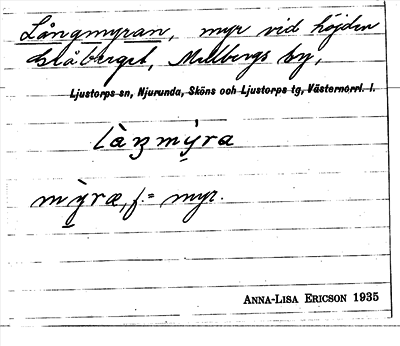 Långmyran, myr vid höjden
Blåberget, Mellbergs by,
Ljustorps sn, Njurunda, Sköns och Ljustorps tg, Västernorrl. l.
làŋmỳ̠ra
mỳ̠ræ, f. = myr.
ANNA-LISA ERICSON 1935